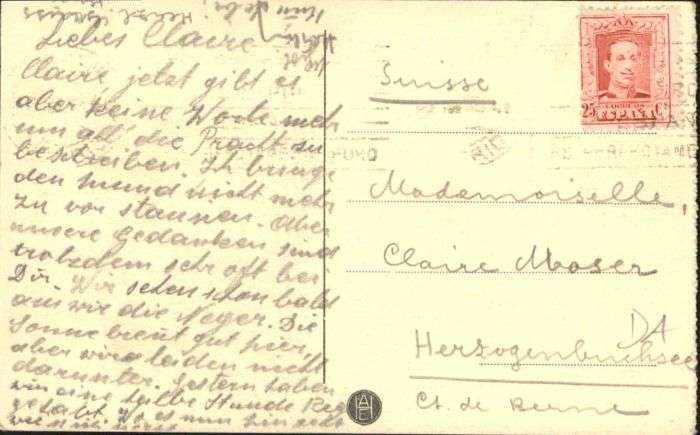 Liebes Claire
Claire jetzt gibt es
aber keine Worte mehr
um all die Pracht zu
beschreiben. Ich bringe
den Mund nicht mehr
zu vor staunen. Aber
unsere Gedanken sind
trotzdem sehr oft bei
Dir. Wir sehen schon bald
aus wie die Neger. Die
Sonne brennt gut hier,
aber wir leiden nicht
darunter. Gestern haben
wir eine halbe Stunde Reg
gehabt
Suisse
Mademoiselle,
Claire Moser
DA
Herzogenbuchsee
Ct. de Berne
25 CORREOS Cs
ESPAÑA